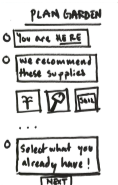 PLAN GARDEN
You are HERE
We recommend
these supplies
Soil
...
Select what you
already have!
NEXT